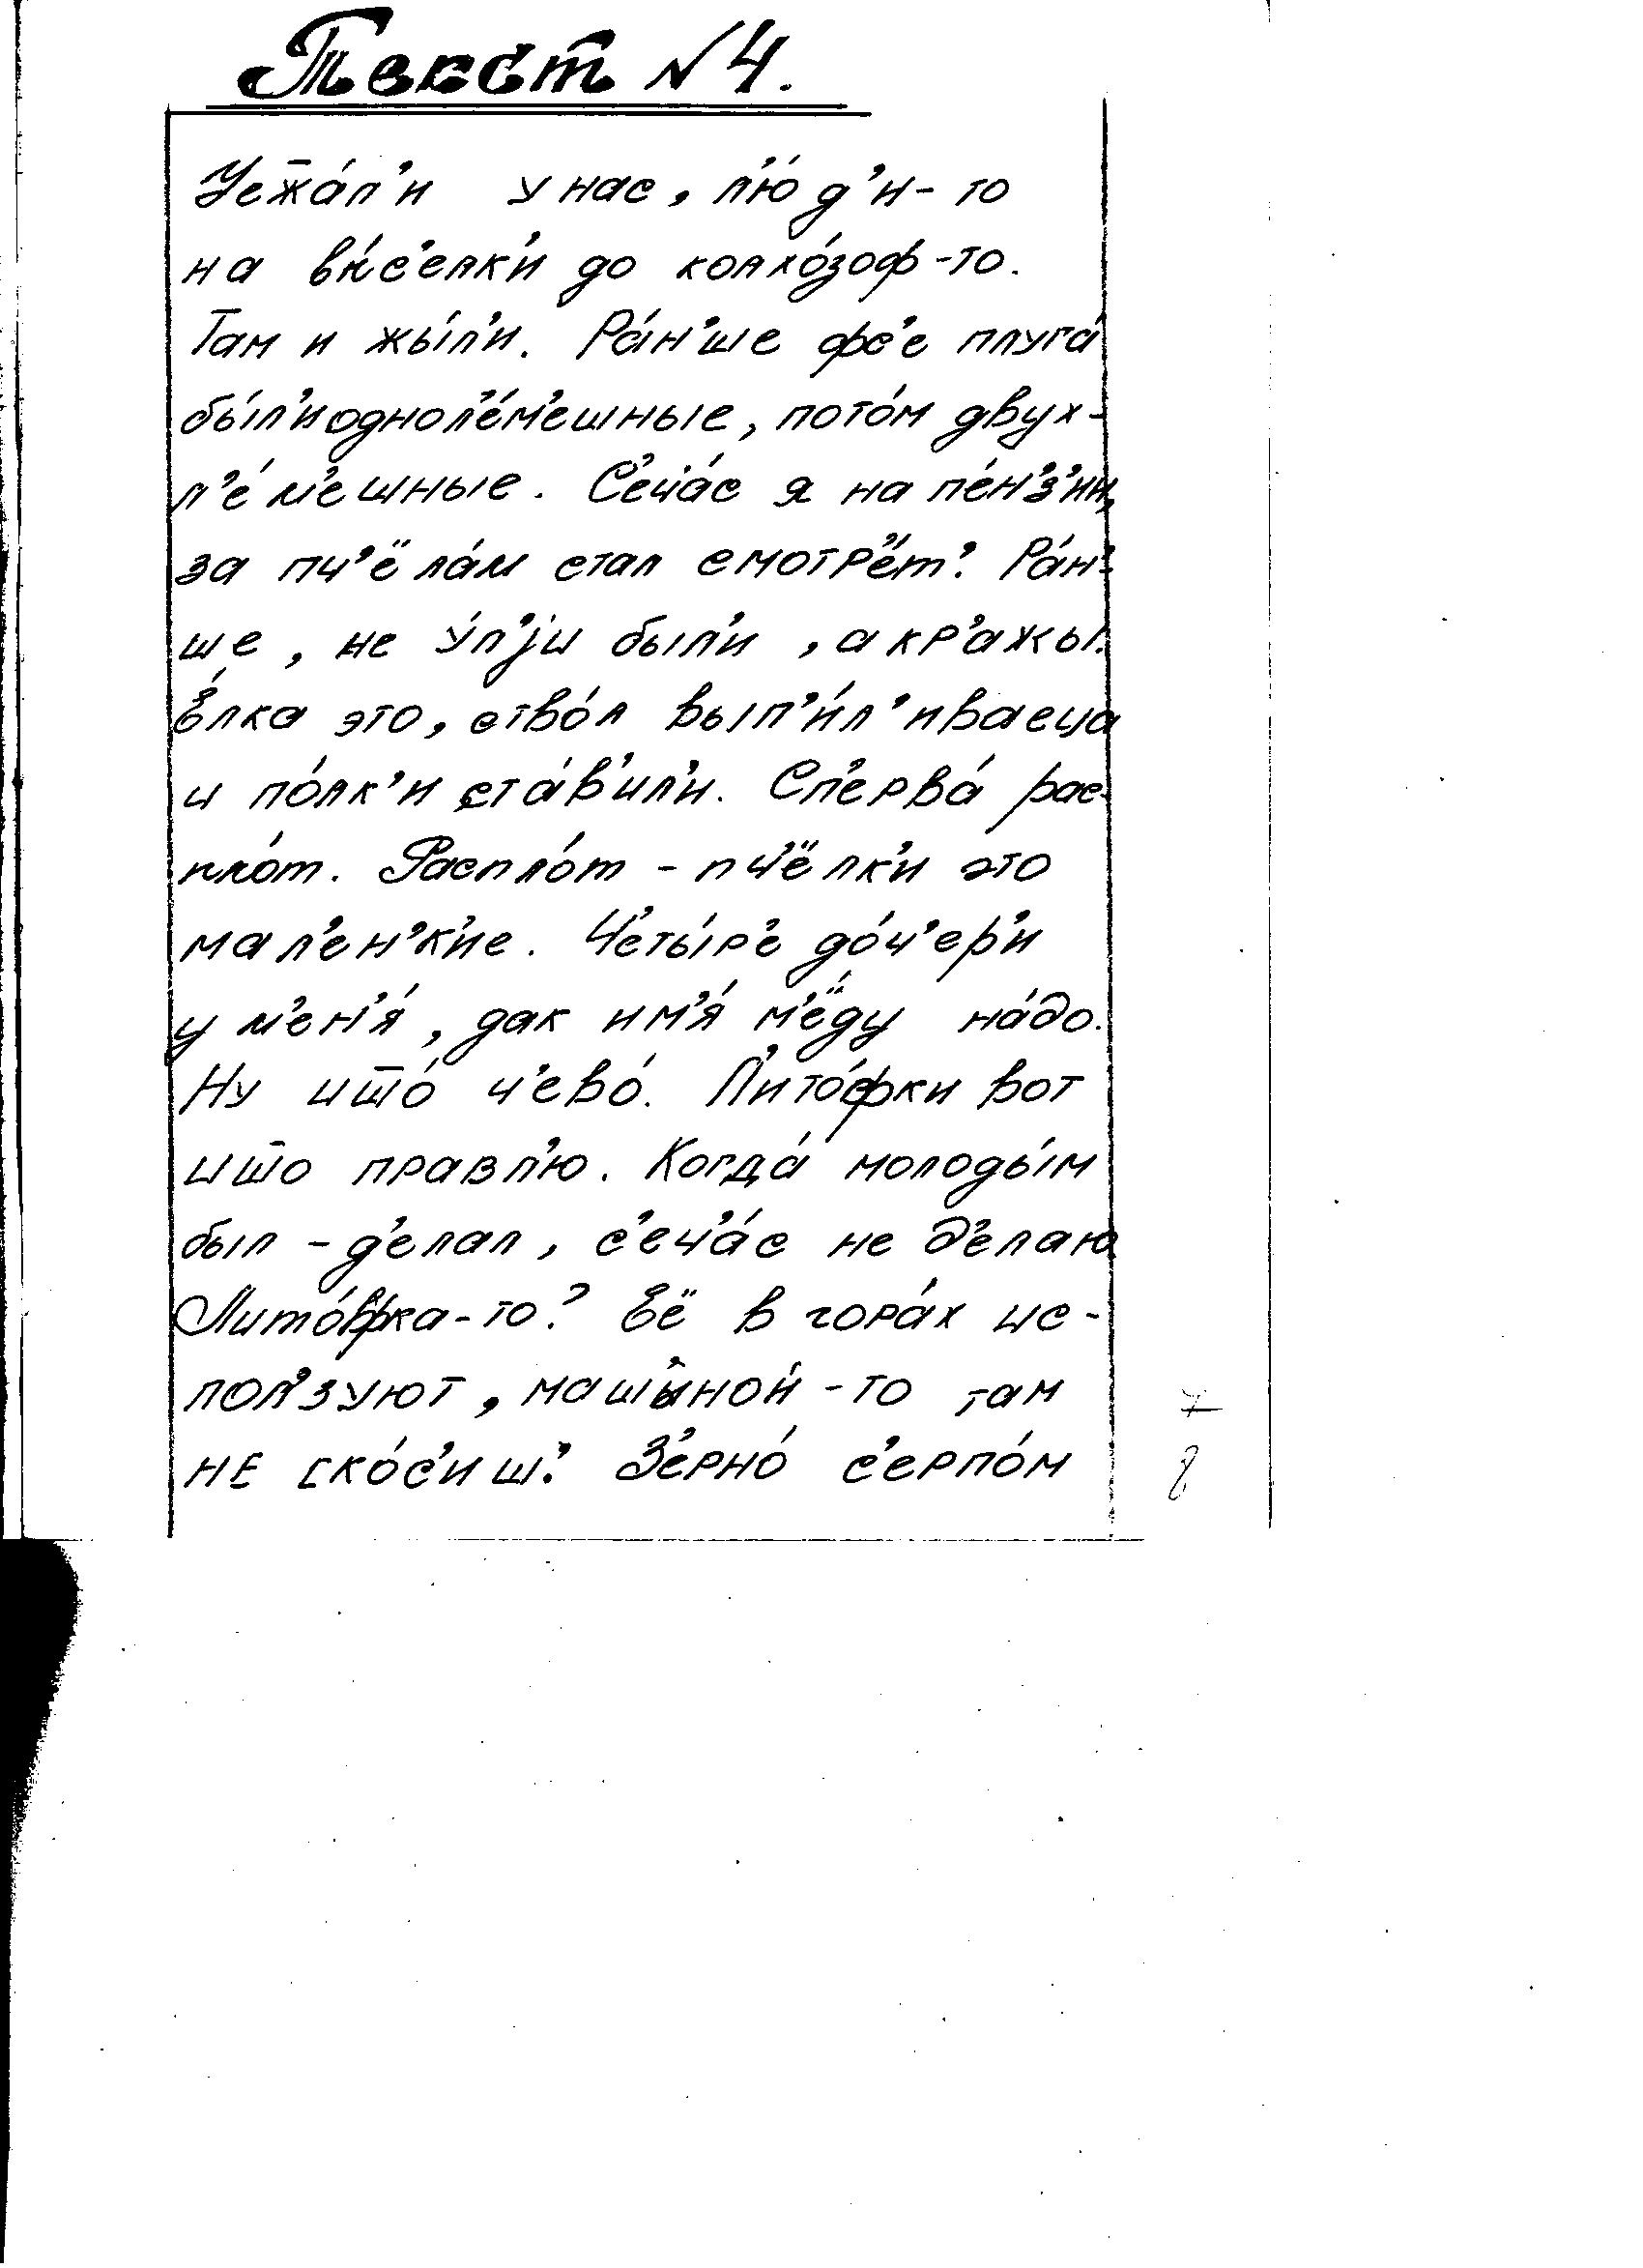 Текст №4.
Уеж̄а́л'и у нас, л'ю́д'и-то
на вы́с'елк'и до колхо́зоф-то.
Там и жы́л'и. Ра́н'ше фс'е плуга́
бы́л'и однол'е́м'ешные, пото́м двух-
л'е́м'ешные. С'еча́с я на пе́нз'ии,
за пч'ёла́м стал смотр'е́т'. Ра́н'-
ше, не у́л'jи был'и, а кр'ажы́.
Ёлка это, ство́л вып'и́л'иваеца
и по́лк'и ста́в'ил'и. Сп'ерва́ рас-
пло́т. Распло́т - пч'ёлк'и это
мал'ен'к'ие. Ч'еты́р'е до́ч'ер'и
у м'ен'я́, дак им'я́ м'ёду на́до.
Ну ишт̄о́ ч'ево́. Л'ито́фки вот
ишт̄о правл'ю. Когда́ молоды́м
был - д'елал, с'еч'а́с не д'елаю
Лито́вка-то? Её в гора́х ис-
пол'зуют, машы́ной-то там
не ско́с'иш'. З'ерно́ с'ерпо́м
7
8